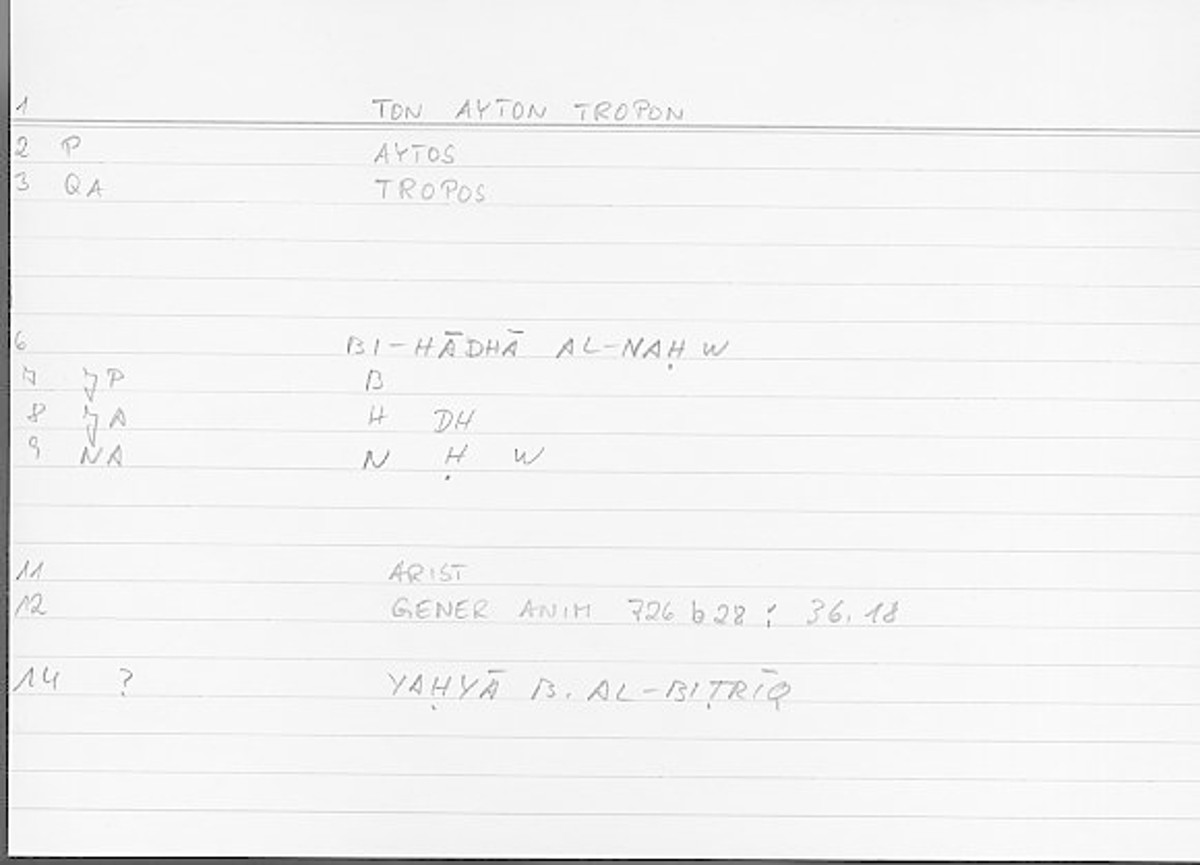 1 TON AYTON TROPON
2 P AYTOS
3 QA TROPOS
6 BI-HĀDHĀ AL-NAḤW
7 JP B
8 JA H DH
9 NA N Ḥ W
11 ARIST
12 GENER ANIM 726 b 28 ; 36.18
14 ? YAḤYĀ B. AL-BIṬRĪQ